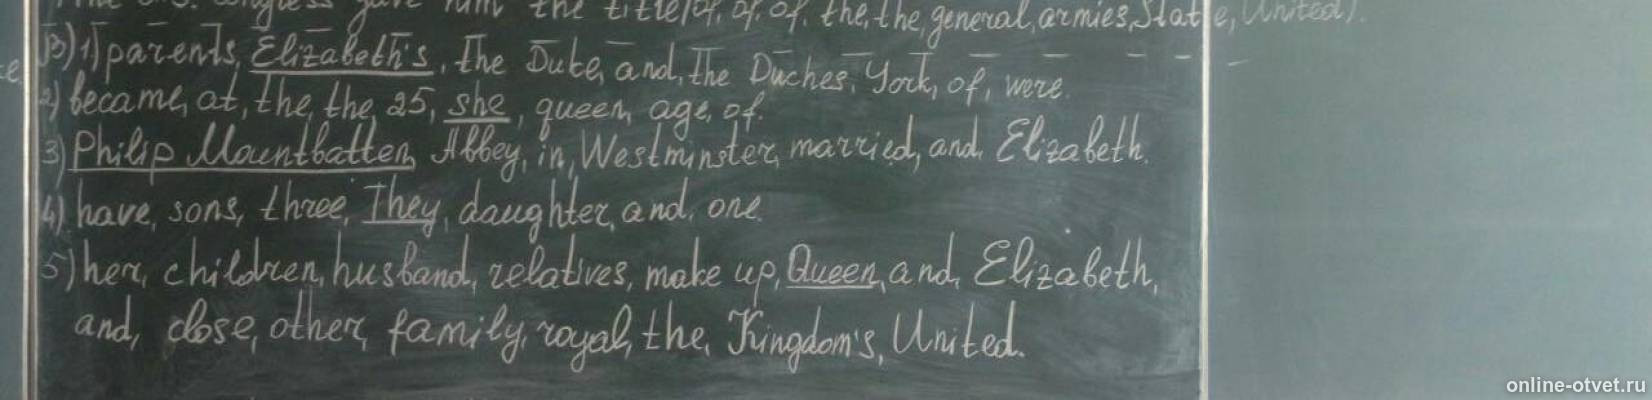 gave him the title, of, of, of, the, the, general, armies, State, United).
B) 1) parents, Elizabeth's, the Duke, and, the Duches, York, of, were.
2) became, at, the, the, 25, she, queen, age, of.
3) Philip Mountbatten, Abbey, in, Westminster, married, and, Elizabeth.
4) have, sons, three, They, daughter, and, one.
5) her, children, husband, relatives, make up, Queen, and, Elizabeth,
and, close, other, family, royal, the, Kingdom's, United.
online-otvet.ru